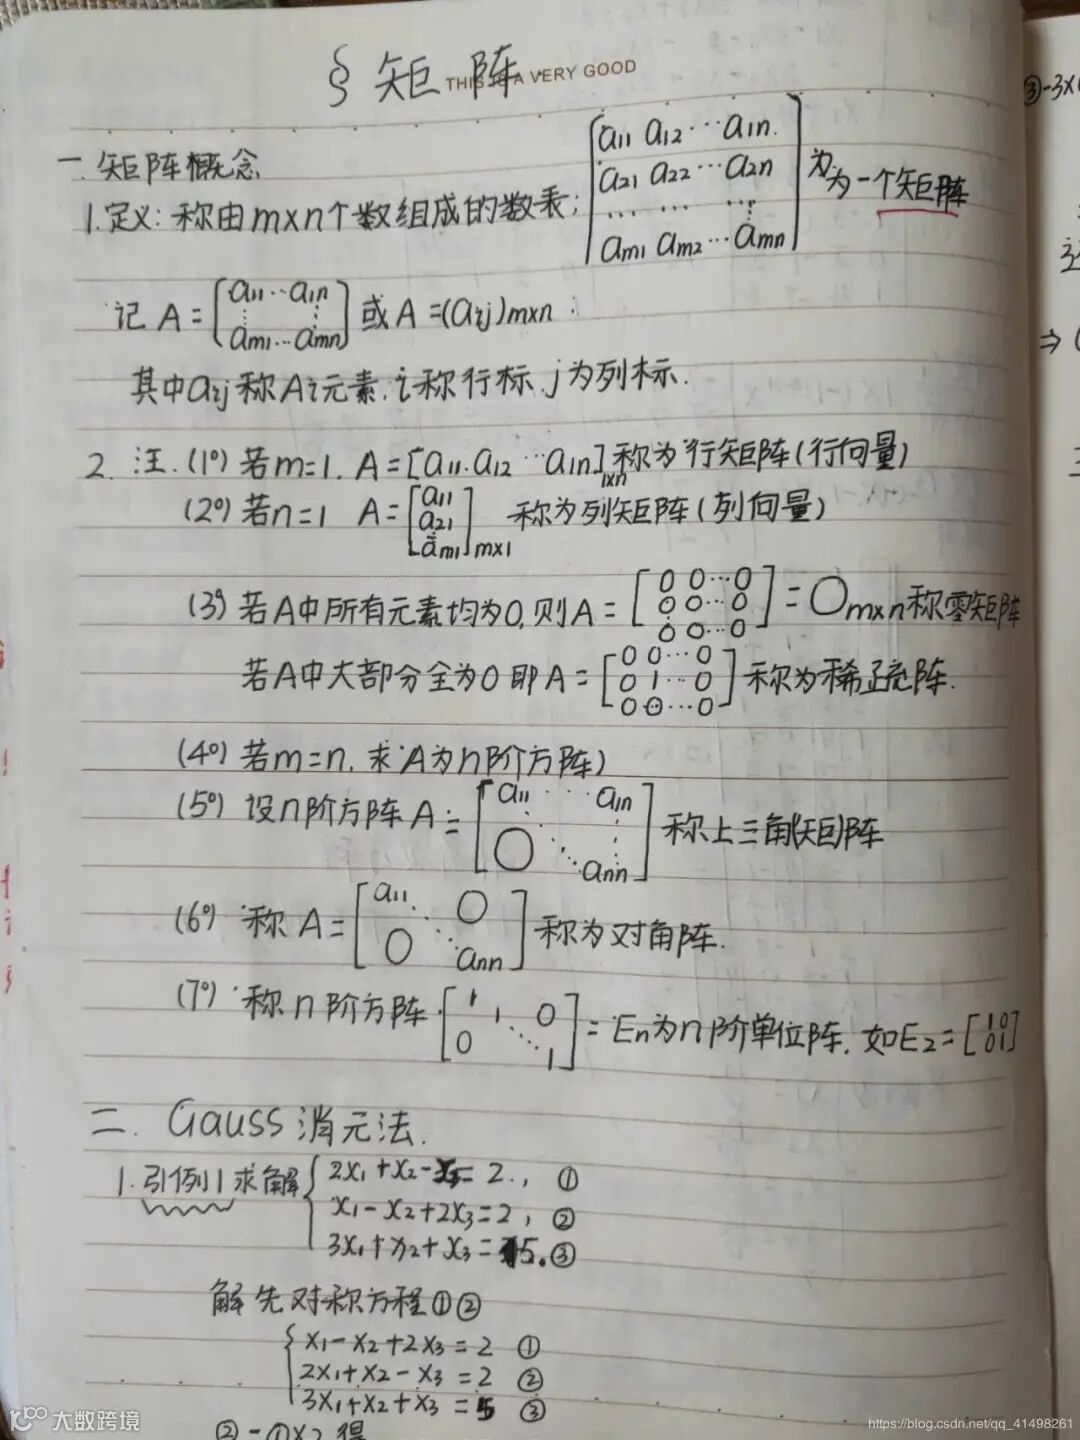 § 矩阵
THIS IS A VERY GOOD
一. 矩阵概念
1. 定义: 称由m×n个数组成的数表: [a11 a12 … a1n
a21 a22 … a2n
… … …
am1 am2 … amn] 为为一个矩阵
记 A = [a11 … a1n
⋮ ⋮
am1 … amn] 或 A = (aij)m×n
其中aij称A元素, i称行标, j为列标.
2. 注. (1°) 若m=1. A = [a11. a12 … a1n]1×n 称为行矩阵(行向量)
(2°) 若n=1 A = [a11
a21
⋮
am1]m×1 称为列矩阵(列向量)
(3°) 若A中所有元素均为0, 则A = [0 0 … 0
0 0 … 0
0 0 … 0] = Om×n称零矩阵
若A中大部分全为0 即A = [0 0 … 0
0 1 … 0
0 0 … 0] 称为稀疏阵.
(4°) 若m=n, 求A为n阶方阵)
(5°) 设n阶方阵A = [a11 … a1n
O ⋱ ⋮
ann] 称上三角(矩)阵
(6°) 称A = [a11 ⋱ O
O ⋱ ann] 称为对角阵.
(7°) 称n阶方阵 [1 1 0
0 ⋱ 1] = En为n阶单位阵. 如E2 = [1 0
0 1]
二. Gauss消元法.
1. 引例1求解 { 2x1+x2-x3=2., ①
x1-x2+2x3=2, ②
3x1+x2+x3=5. ③
解先对称方程①②
{ x1-x2+2x3=2 ①
2x1+x2-x3=2 ②
3x1+x2+x3=5 ③
②-①×2得
③-3×
⇒
大数跨境
https://blog.csdn.net/qq_41498261